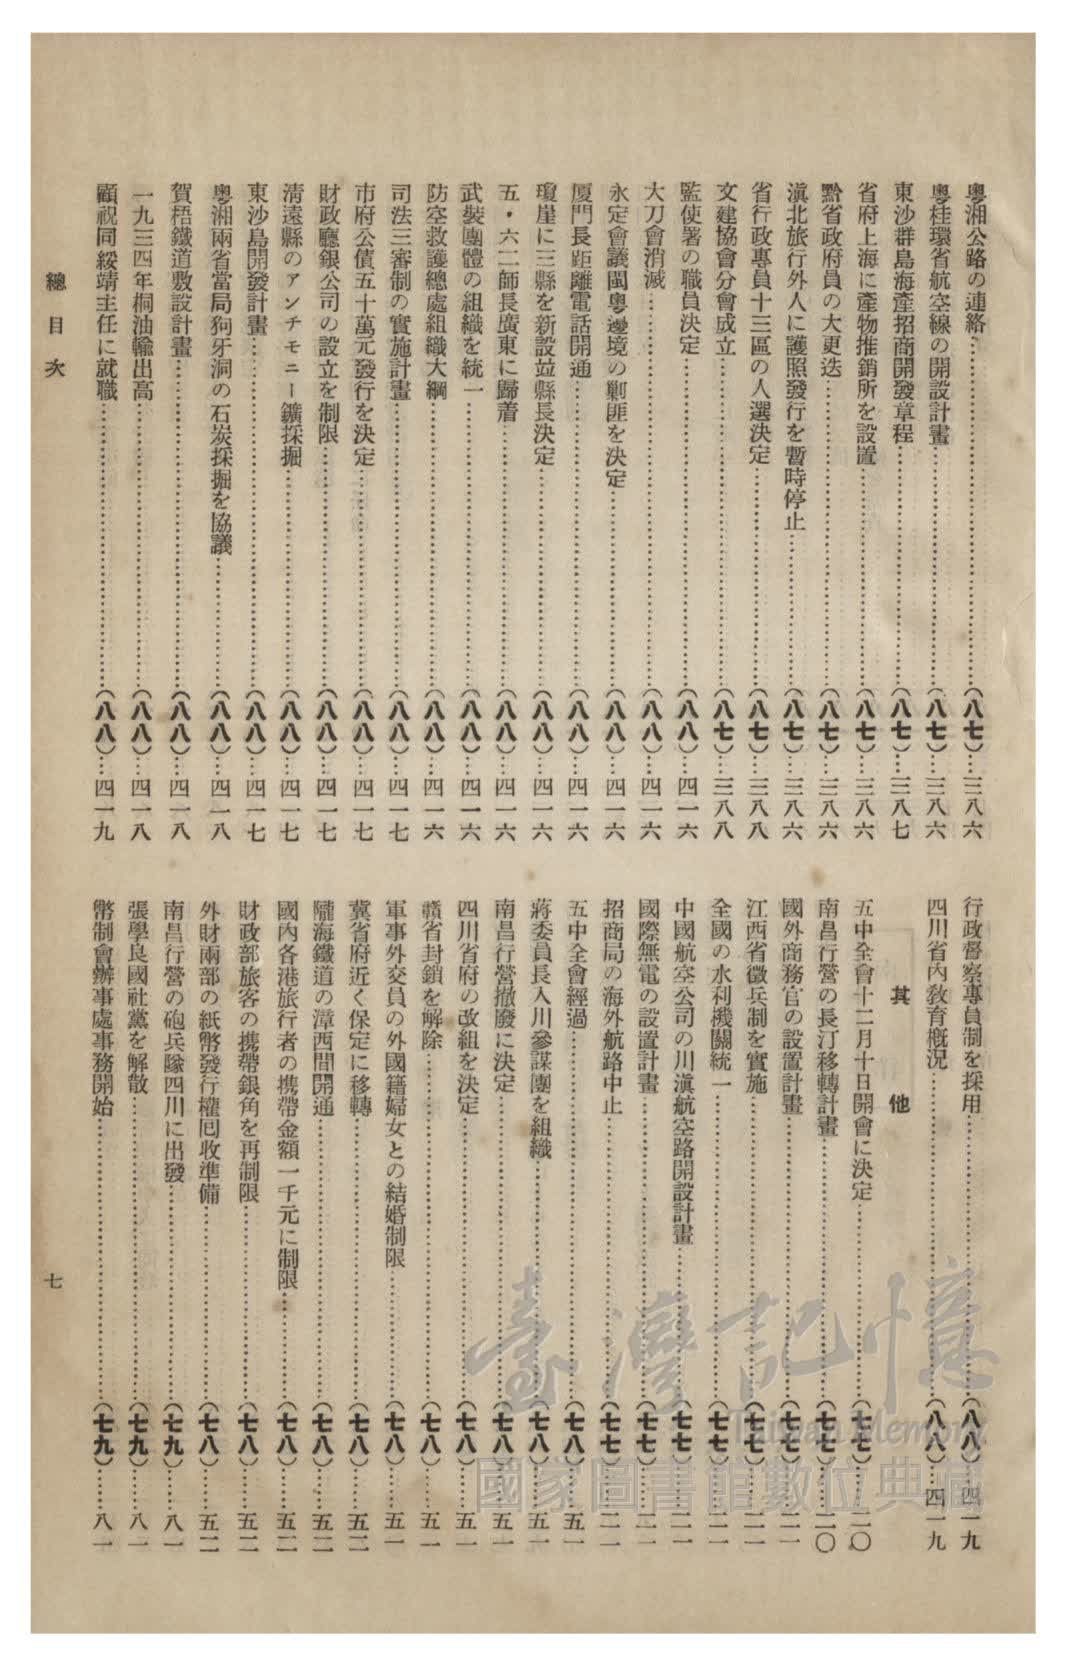 粵湘公路の連絡……(八七)…三八六
粵桂環省航空線の開設計畫……(八七)…三八六
東沙群島海產招商開發章程……(八七)…三八七
省府上海に產物推銷所を設置……(八七)…三八六
黔省政府員の大更迭……(八七)…三八六
滇北旅行外人に護照發行を暫時停止……(八七)…三八六
省行政專員十三區の人選決定……(八七)…三八八
文建協會分會成立……(八七)…三八八
監使署の職員決定……(八八)…四一六
大刀會消滅……(八八)…四一六
永定會議閩粵邊境の剿匪を決定……(八八)…四一六
厦門長距離電話開通……(八八)…四一六
瓊崖に三縣を新設竝縣長決定……(八八)…四一六
五・六二師長廣東に歸着……(八八)…四一六
武裝團體の組織を統一……(八八)…四一六
防空救護總處組織大綱……(八八)…四一六
司法三審制の實施計畫……(八八)…四一七
市府公債五十萬元發行を決定……(八八)…四一七
財政廳銀公司の設立を制限……(八八)…四一七
淸遠縣のアンチモニー鑛採掘……(八八)…四一七
東沙島開發計畫……(八八)…四一七
粵湘兩省當局狗牙洞の石炭採掘を協議……(八八)…四一八
賀梧鐵道敷設計畫……(八八)…四一八
一九三四年桐油輸出高……(八八)…四一八
顧祝同綏靖主任に就職……(八八)…四一九
行政督察專員制を採用……(八八)…四一九
四川省內敎育槪況……(八八)…四一九
其他
五中全會十二月十日開會に決定……(七七)……二〇
南昌行營の長汀移轉計畫……(七七)……二〇
國外商務官の設置計畫……(七七)……二一
江西省徵兵制を實施……(七七)……二一
全國の水利機關統一……(七七)……二一
中國航空公司の川滇航空路開設計畫……(七七)……二一
國際無電の設置計畫……(七七)……二一
招商局の海外航路中止……(七七)……二一
五中全會經過……(七八)……五一
蔣委員長入川參謀團を組織……(七八)……五一
南昌行營撤廢に決定……(七八)……五一
四川省府の改組を決定……(七八)……五一
贛省封鎖を解除……(七八)……五一
軍事外交員の外國籍婦女との結婚制限……(七八)……五一
冀省府近く保定に移轉……(七八)……五二
隴海鐵道の漳西間開通……(七八)……五二
國內各港旅行者の携帶金額一千元に制限…(七八)……五二
財政部旅客の携帶銀角を再制限……(七八)……五二
外財兩部の紙幣發行權囘收準備……(七八)……五二
南昌行營の砲兵隊四川に出發……(七九)……八一
張學良國社黨を解散……(七九)……八一
幣制會辦事處事務開始……(七九)……八一
總目次
七
臺灣記憶
Taiwan Memory
國家圖書館數位典藏